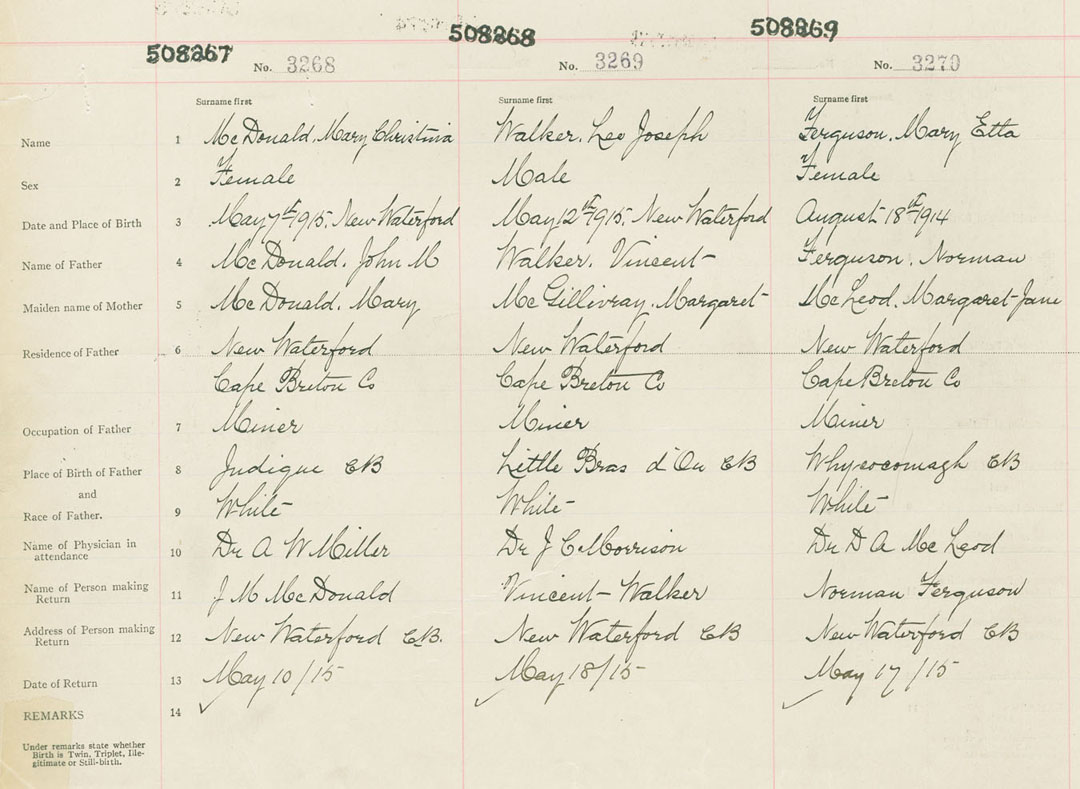 508267 508268 508269
No. 3268 No. 3269 No. 3270
Surname first Surname first Surname first
Name 1 McDonald, Mary Christina Walker, Leo Joseph Ferguson, Mary Etta
Sex 2 Female Male Female
Date and Place of Birth 3 May 7th 1915, New Waterford May 12th 1915, New Waterford August 18th 1914
Name of Father 4 McDonald, John M Walker, Vincent Ferguson, Norman
Maiden name of Mother 5 McDonald, Mary McGillivray, Margaret McLeod, Margaret Jane
Residence of Father 6 New Waterford New Waterford New Waterford
Cape Breton Co Cape Breton Co Cape Breton Co
Occupation of Father 7 Miner Miner Miner
Place of Birth of Father 8 Judique CB Little Bras d'Or CB Whycocomagh CB
and
Race of Father. 9 White White White
Name of Physician in attendance 10 Dr A W Miller Dr J C Morrison Dr D A McLeod
Name of Person making Return 11 J M McDonald Vincent Walker Norman Ferguson
Address of Person making Return 12 New Waterford C.B. New Waterford CB New Waterford CB
Date of Return 13 May 10/15 May 18/15 May 17/15
REMARKS 14
Under remarks state whether
Birth is Twin, Triplet, Ille-
gitimate or Still-birth.